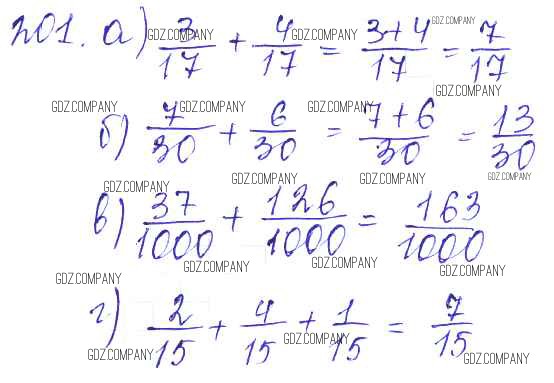 201. а) 3/17 + 4/17 = 3+4/17 = 7/17
б) 7/30 + 6/30 = 7+6/30 = 13/30
в) 37/1000 + 126/1000 = 163/1000
г) 2/15 + 4/15 + 1/15 = 7/15
GDZ.COMPANY GDZ.COMPANY GDZ.COMPANY
GDZ.COMPANY
GDZ.COMPANY GDZ.COMPANY GDZ.COMPANY
GDZ.COMPANY GDZ.COMPANY GDZ.COMPANY GDZ.COMPANY
GDZ.COMPANY GDZ.COMPANY GDZ.COMPANY
GDZ.COMPANY
GDZ.COMPANY GDZ.COMPANY GDZ.COMPANY